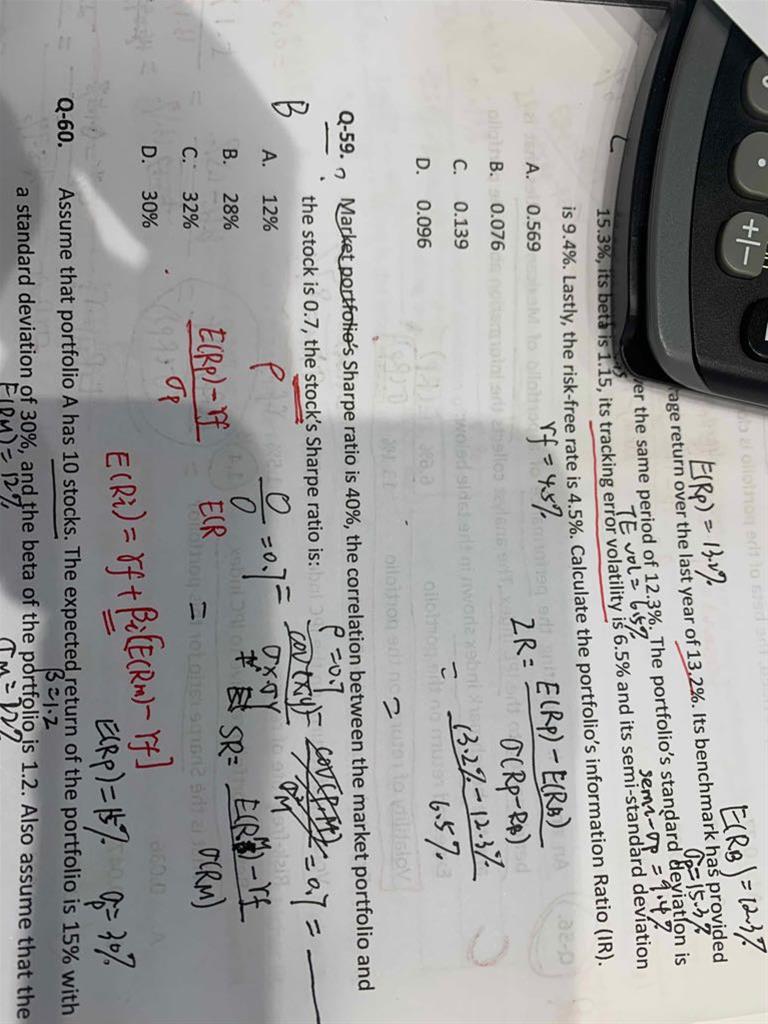 E(RB) = 12.3%
E(Rp) = 13.2%
age return over the last year of 13.2%. Its benchmark has provided
σp=15.3%
er the same period of 12.3%. The portfolio's standard deviation is
TE vol = 6.5%
semi-σp = 9.4%
15.3%, its beta is 1.15, its tracking error volatility is 6.5% and its semi-standard deviation
is 9.4%. Lastly, the risk-free rate is 4.5%. Calculate the portfolio's information Ratio (IR).
rf = 4.5%
A. 0.569
B. 0.076
C. 0.139
D. 0.096
IR = E(Rp) - E(RB)
σ(Rp-RB)
= 13.2% - 12.3%
6.5%
=
Q-59. Market portfolio's Sharpe ratio is 40%, the correlation between the market portfolio and
the stock is 0.7, the stock's Sharpe ratio is:
B
ρ=0.7
A. 12%
B. 28%
C. 32%
D. 30%
=0.7=
cov(x,y)
σxσy
=0.7=
SR=
E(RM)-rf
σ(RM)
ρ
E(Rp)-rf
σp
=
E(R
E(Ri) = rf + βi[E(Rm) - rf]
E(Rp)=15% σp=30%
Q-60. Assume that portfolio A has 10 stocks. The expected return of the portfolio is 15% with
β=1.2
a standard deviation of 30%, and the beta of the portfolio is 1.2. Also assume that the
E(RM) = 12%